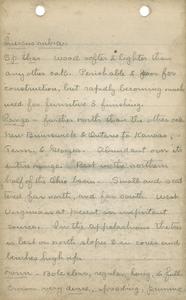 Quercus rubra.
Sp. Char. Wood softer & lighter than
any other oaks. Perishable & poor for
construction, but rapidly becoming much
used for furniture & finishing.
Range - further north than the other oak
new Brunswick & Ontario to Kansas,
Tenn. & Georgia. Abundant over its
entire range. Best in the northern
half of the Ohio basin. Small and scat
tered far north, and far south. West
Virginia at present an important
source. In the Appalachians thrives
is best on north slopes & in coves and
benches high up.
Form - Bole clear, regular, long, & full
Crown very dense, spreading,